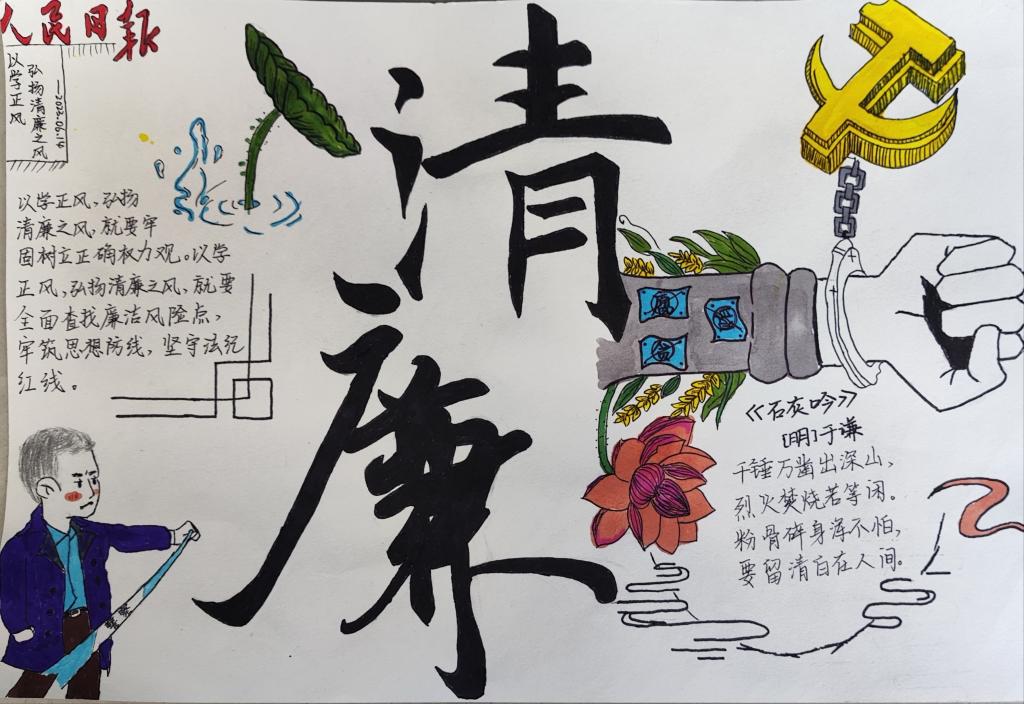 人民日报
以学正风
弘扬清廉之风
—2023.06.14
清廉
以学正风、弘扬
清廉之风,就要牢
固树立正确权力观。以学
正风,弘扬清廉之风,就要
全面查找廉洁风险点,
牢筑思想防线,坚守法纪
红线。
《石灰吟》
[明]于谦
千锤万凿出深山,
烈火焚烧若等闲。
粉骨碎身浑不怕,
要留清白在人间。